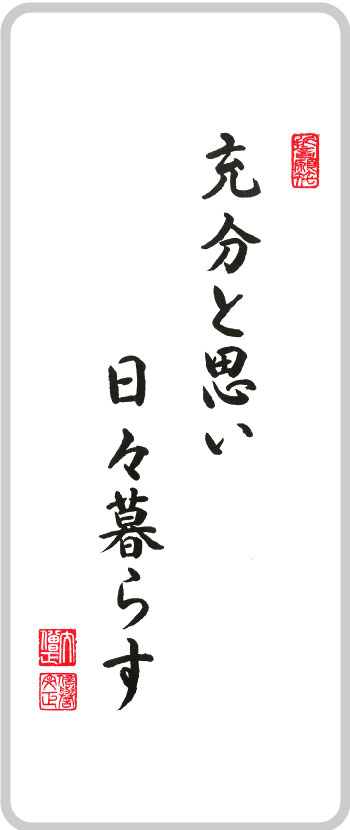 充分と思い
日々暮らす